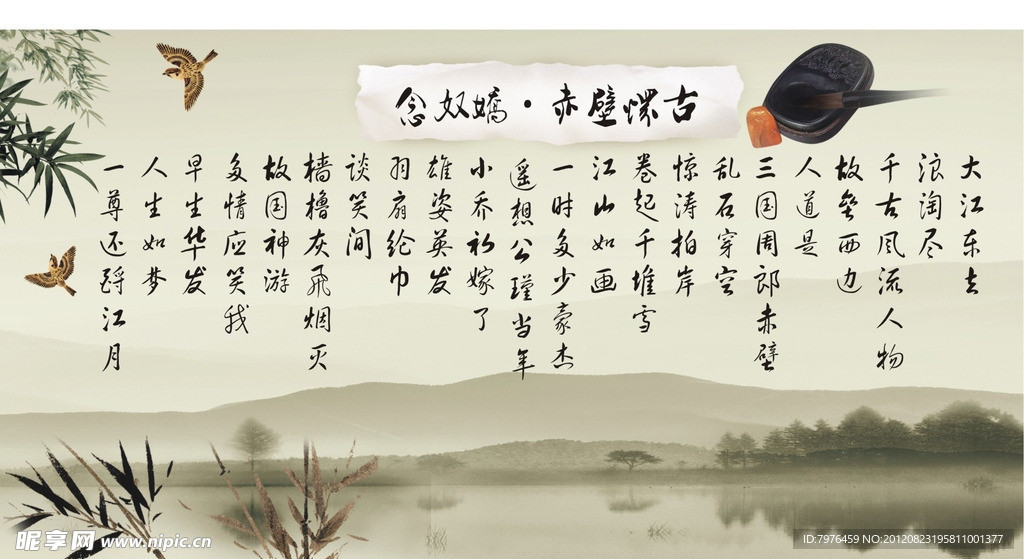 念奴嬌·赤壁懷古
大江东去
浪淘尽
千古风流人物
故垒西边
人道是
三国周郎赤壁
乱石穿空
惊涛拍岸
卷起千堆雪
江山如画
一时多少豪杰
遥想公瑾当年
小乔初嫁了
雄姿英发
羽扇纶巾
谈笑间
樯橹灰飞烟灭
故国神游
多情应笑我
早生华发
人生如梦
一尊还酹江月
昵享网 www.nipic.cn
ID:7976459 NO:20120823195811001377